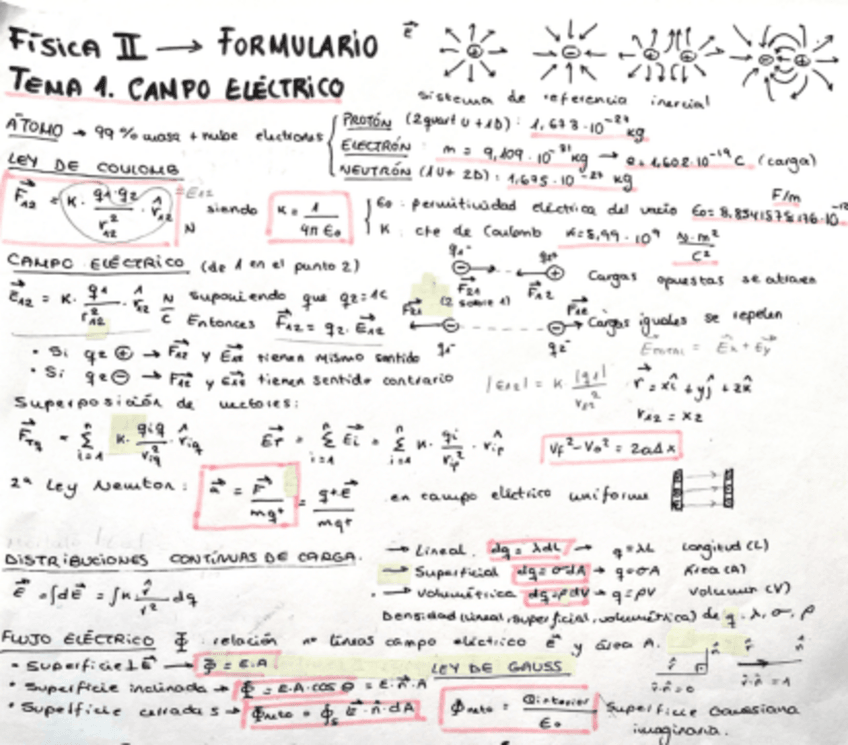 Física II → FORMULARIO
E⃗
TEMA 1. CAMPO ELÉCTRICO
sistema de referencia inercial
ÁTOMO → 99% masa + nube electrones
PROTÓN (2quart U + 1D): 1,673·10⁻²⁷ kg
ELECTRÓN: m = 9,109·10⁻³¹ kg → e = 1,602·10⁻¹⁹ C (carga)
NEUTRÓN (1U + 2D): 1,675·10⁻²⁷ kg
LEY DE COULOMB
F⃗₁₂ = K · q₁·q₂ / r₁₂² · r̂₁₂ = E₁₂ N siendo K = 1 / 4π ε₀
ε₀: permitividad eléctrica del vacío ε₀ = 8,8541878176·10⁻¹² F/m
K: cte de Coulomb K = 8,99·10⁹ N·m² / C²
CAMPO ELÉCTRICO (de 1 en el punto 2)
q₁⁻ q₂⁺
F⃗₂₁ F⃗₁₂ Cargas opuestas se atraen
E⃗₁₂ = K · q₁ / r₁₂² · r̂₁₂ N/C suponiendo que q₂ = 1C
Entonces F⃗₁₂ = q₂ · E⃗₁₂
F⃗₂₁ (2 sobre 1) F⃗₁₂
q₁⁻ q₂⁻ Cargas iguales se repelen
E⃗total = E⃗x + E⃗y
• Si q₂ ⊕ → F⃗₁₂ y E⃗₁₂ tienen mismo sentido
• Si q₂ ⊖ → F⃗₁₂ y E⃗₁₂ tienen sentido contrario
|E₁₂| = K · |q₁| / r₁₂² r⃗ = xî + yĵ + zk̂
r₁₂ = x₂
Superposición de vectores:
F⃗Tq = Σ i=1 n K · qiq / r²iq · r̂iq E⃗T = Σ i=1 n E⃗i = Σ i=1 n K · qi / r²ip · r̂ip
Vf² − V₀² = 2aΔx
2ª Ley Newton: a⃗ = F⃗ / mq⁺ = q⁺·E⃗ / mq⁺ en campo eléctrico uniforme
DISTRIBUCIONES CONTÍNUAS DE CARGA.
→ Lineal. dq = λdL → q = λL Longitud (L)
→ Superficial dq = σdA → q = σA Área (A)
→ Volumétrica dq = ρdV → q = ρV Volumen (V)
E⃗ = ∫dE⃗ = ∫K r̂ / r² dq
Densidad (lineal, superficial, volumétrica) de q. λ, σ, ρ
FLUJO ELÉCTRICO Φ relación nº líneas campo eléctrico E⃗ y área A.
• Superficie ⊥ E⃗ → Φ = E·A
• Superficie inclinada → Φ = E·A·cos θ = E⃗·n̂·A
• Superficie cerrada S → Φneto = ∮s E⃗·n̂·dA
LEY DE GAUSS
Φneto = Qinterior / ε₀
Superficie Gaussiana imaginaria.
r̂ n̂ r̂ n̂
r̂·n̂ = 0 r̂·n̂ = 1